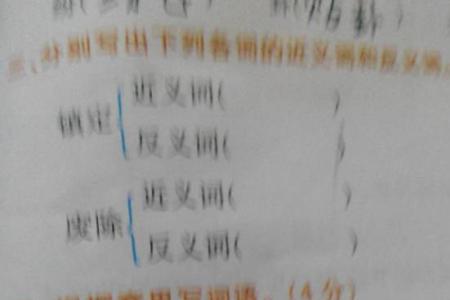 三、分别写出下列各词的近义词和反义词。
镇定
近义词(    )
反义词(    )
废除
近义词(    )
反义词(    )
(4分)